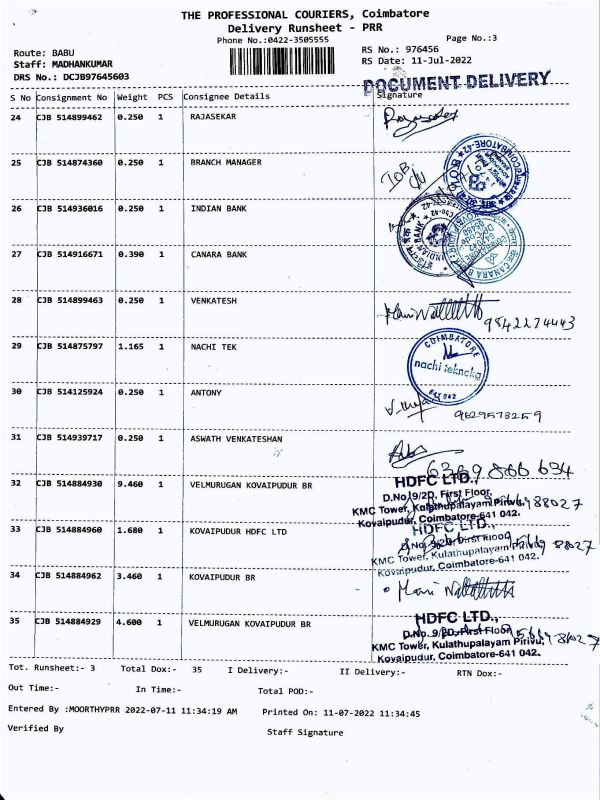 THE PROFESSIONAL COURIERS, Coimbatore
Delivery Runsheet - PRR
Phone No.:0422-3505555
Page No.:3
Route: BABU
RS No.: 976456
Staff: MADHANKUMAR
RS Date: 11-Jul-2022
DRS No.: DCJB97645603
DOCUMENT DELIVERY
S No Consignment No Weight PCS Consignee Details Signature
24 CJB 514899462 0.250 1 RAJASEKAR
25 CJB 514874360 0.250 1 BRANCH MANAGER
IOB
26 CJB 514936016 0.250 1 INDIAN BANK
27 CJB 514916671 0.390 1 CANARA BANK
28 CJB 514899463 0.250 1 VENKATESH
9842274443
29 CJB 514875797 1.165 1 NACHI TEK
COIMBATORE
nachi teknokg
641 042
30 CJB 514125924 0.250 1 ANTONY
9629573259
31 CJB 514939717 0.250 1 ASWATH VENKATESHAN
6369 866 634
32 CJB 514884930 9.460 1 VELMURUGAN KOVAIPUDUR BR
HDFC LTD.,
D.No.9/2D, First Floor,
KMC Tower, Kulathupalayam Pirivu,
Kovaipudur, Coimbatore-641 042.
33 CJB 514884960 1.680 1 KOVAIPUDUR HDFC LTD
HDFC LTD.,
D.No. 9/2D, First Floor
KMC Tower, Kulathupalayam Pirivu,
Kovaipudur, Coimbatore-641 042.
34 CJB 514884962 3.460 1 KOVAIPUDUR BR
35 CJB 514884929 4.600 1 VELMURUGAN KOVAIPUDUR BR
HDFC LTD.,
D.No. 9/2D, First Floor
KMC Tower, Kulathupalayam Pirivu,
Kovaipudur, Coimbatore-641 042.
Tot. Runsheet:- 3 Total Dox:- 35 I Delivery:- II Delivery:- RTN Dox:-
Out Time:- In Time:- Total POD:-
Entered By :MOORTHYPRR 2022-07-11 11:34:19 AM Printed On: 11-07-2022 11:34:45
Verified By Staff Signature